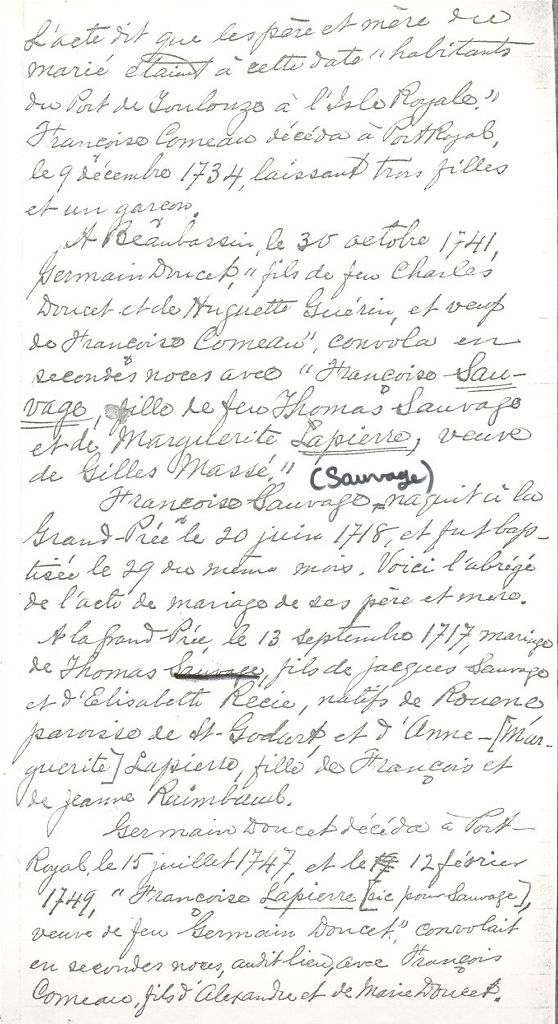 L'acte dit que les père et mère du
marié étaient à cette date "habitants
du Port de Toulouze à l'Isle Royale."
Françoise Comeau décéda à Port Royal,
le 9 décembre 1734, laissant trois filles
et un garçon.
A Beaubassin, le 30 octobre 1741,
Germain Doucet, "fils de feu Charles
Doucet et de Huguette Guérin, et veuf
de Françoise Comeau", convola en
secondes noces avec "Françoise Sau-
vage, fille de feu Thomas Sauvage
et de Marguerite Lapierre, veuve
de Gilles Massé." (Sauvage)
Françoise Sauvage naquit à la
Grand-Prée le 20 juin 1718, et fut bap-
tisée le 29 du même mois. Voici l'abrégé
de l'acte de mariage de ses père et mère.
A la Grand Prée, le 13 septembre 1717, mariage
de Thomas Sauvage, fils de Jacques Sauvage
et d'Elisabeth Récie, natifs de Rouene
paroisse de St-Godart, et d'Anne-[Mar-
guerite] Lapierre, fille de François et
de Jeanne Raimbaud.
Germain Doucet décéda à Port-
Royal, le 15 juillet 1747, et le 12 février
1749, "Françoise Lapierre [sic pour Sauvage],
veuve de feu Germain Doucet," convolait
en secondes noces, audit lieu, avec François
Comeau, fils d'Alexandre et de Marie Doucet.